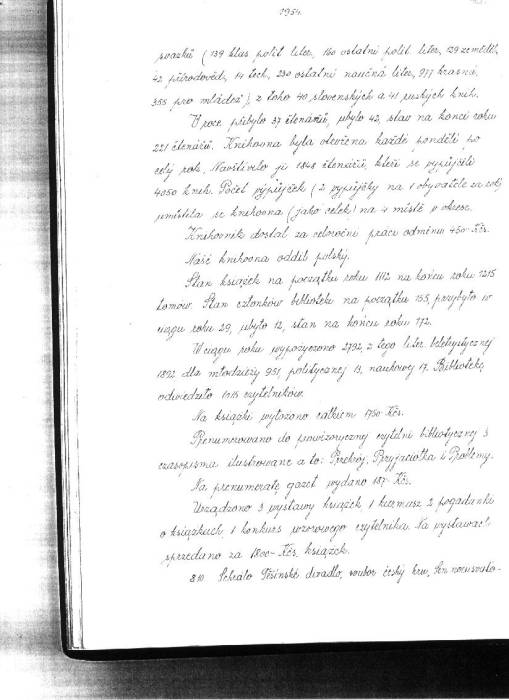 1954.
svazků (139 klas. polit. liter., 160 ostatní polit. liter., 129 zeměděl.
42 přírodověd., 14 tech., 230 ostatní naučná liter., 977 krásná,
355 pro mládež), z toho 40 slovenských a 41 ruských knih.
V roce přibylo 37 čtenářů, ubylo 42, stav na konci roku
221 čtenářů. Knihovna byla otevřena každé pondělí po
celý rok. Navštívilo ji 1848 čtenářů, kteří si vypůjčili
4050 knih. Počet výpůjček (2 výpůjčky na 1 obyvatele za rok)
umístila se knihovna (jako celek) na 4 místě v okrese.
Knihovník dostal za celoroční práci odměnu 450 Kčs.
Naše knihovna oddíl polský.
Stan książek na początku roku 1112 na końcu roku 1215
tomów. Stan członków biblioteki na początku 155, przybyło w
ciągu roku 29, ubyło 12, stan na końcu roku 172.
W ciągu roku wypożyczono 2792, z tego liter. beletrystycznej
1892 dla młodzieży 951, politycznej 13, naukowej 17. Bibliotekę
odwiedziło 1015 czytelników.
Na książki wyłożono całkiem 1750 Kčs.
Prenumerowano do prowizorycznej czytelni bibliotecznej 3
czasopisma ilustrowane a to: Przekrój, Przyjaciółka i Problemy.
Na prenumeratę gazet wydano 187 Kčs.
Urządzono 3 wystawy książek 1 kiermasz 2 pogadanki
o książkach, 1 konkurs wzorowego czytelnika. Na wystawach
sprzedano za 1800 Kčs. książek.
8.10. Sehrálo Těšínské divadlo, soubor český hru,